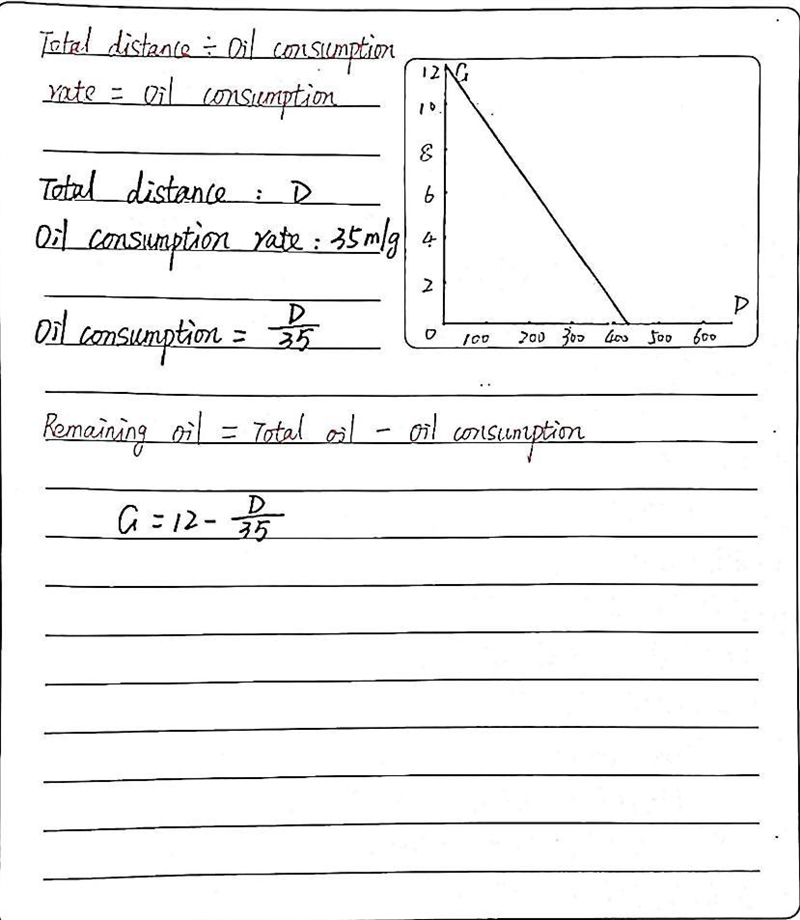 Total distance ÷ Oil consumption
rate = Oil consumption
Total distance : D
Oil consumption rate : 35 m/g
Oil consumption = D/35
12 G
10
8
6
4
2
D
0 100 200 300 400 500 600
Remaining oil = Total oil - oil consumption
G = 12 - D/35